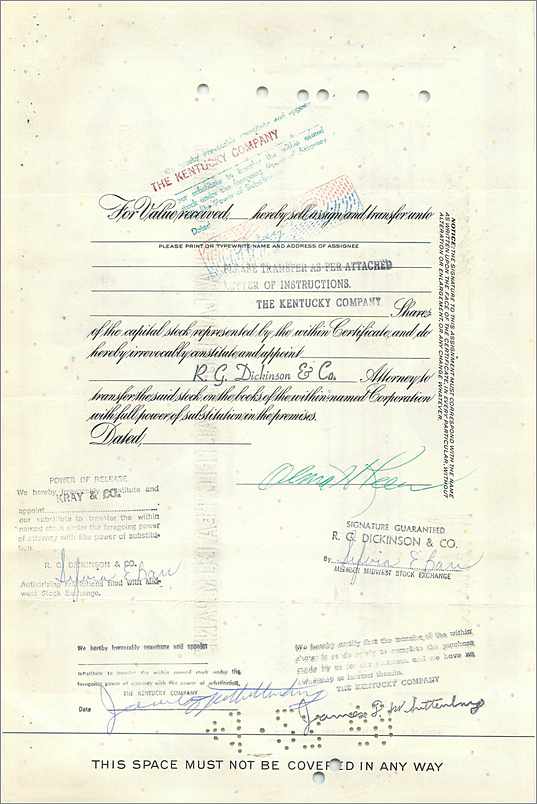 We hereby irrevocably constitute and appoint
THE KENTUCKY COMPANY
our substitute to transfer the within named
stock under the foregoing Power of Attorney
with Power of Substitution
Dated
For Value received, hereby sell assign and transfer unto
PLEASE PRINT OR TYPEWRITE NAME AND ADDRESS OF ASSIGNEE
PLEASE TRANSFER AS PER ATTACHED
LETTER OF INSTRUCTIONS.
THE KENTUCKY COMPANY
Shares
of the capital stock represented by the within Certificate, and do
hereby irrevocably constitute and appoint
R. G. Dickinson & Co. Attorney to
transfer the said stock on the books of the within-named Corporation
with full power of substitution in the premises.
Dated,
NOTICE: THE SIGNATURE TO THIS ASSIGNMENT MUST CORRESPOND WITH THE NAME
AS WRITTEN UPON THE FACE OF THE CERTIFICATE, IN EVERY PARTICULAR, WITHOUT
ALTERATION OR ENLARGEMENT, OR ANY CHANGE WHATEVER.
POWER OF RELEASE
We hereby irrevocably constitute and
KRAY & CO.
appoint
our substitute to transfer the within
named stock under the foregoing power
of attorney with like power of substitu-
tion.
R. G. DICKINSON & CO.
Authorizing resolutions filed with Mid-
west Stock Exchange.
SIGNATURE GUARANTEED
R. G. DICKINSON & CO.
By
MEMBER MIDWEST STOCK EXCHANGE
We hereby irrevocably constitute and appoint
substitute to transfer the within named stock under the
foregoing power of attorney with like power of substitution.
THE KENTUCKY COMPANY
Date
We hereby certify that the transfer of the within
THE KENTUCKY COMPANY
THIS SPACE MUST NOT BE COVERED IN ANY WAY